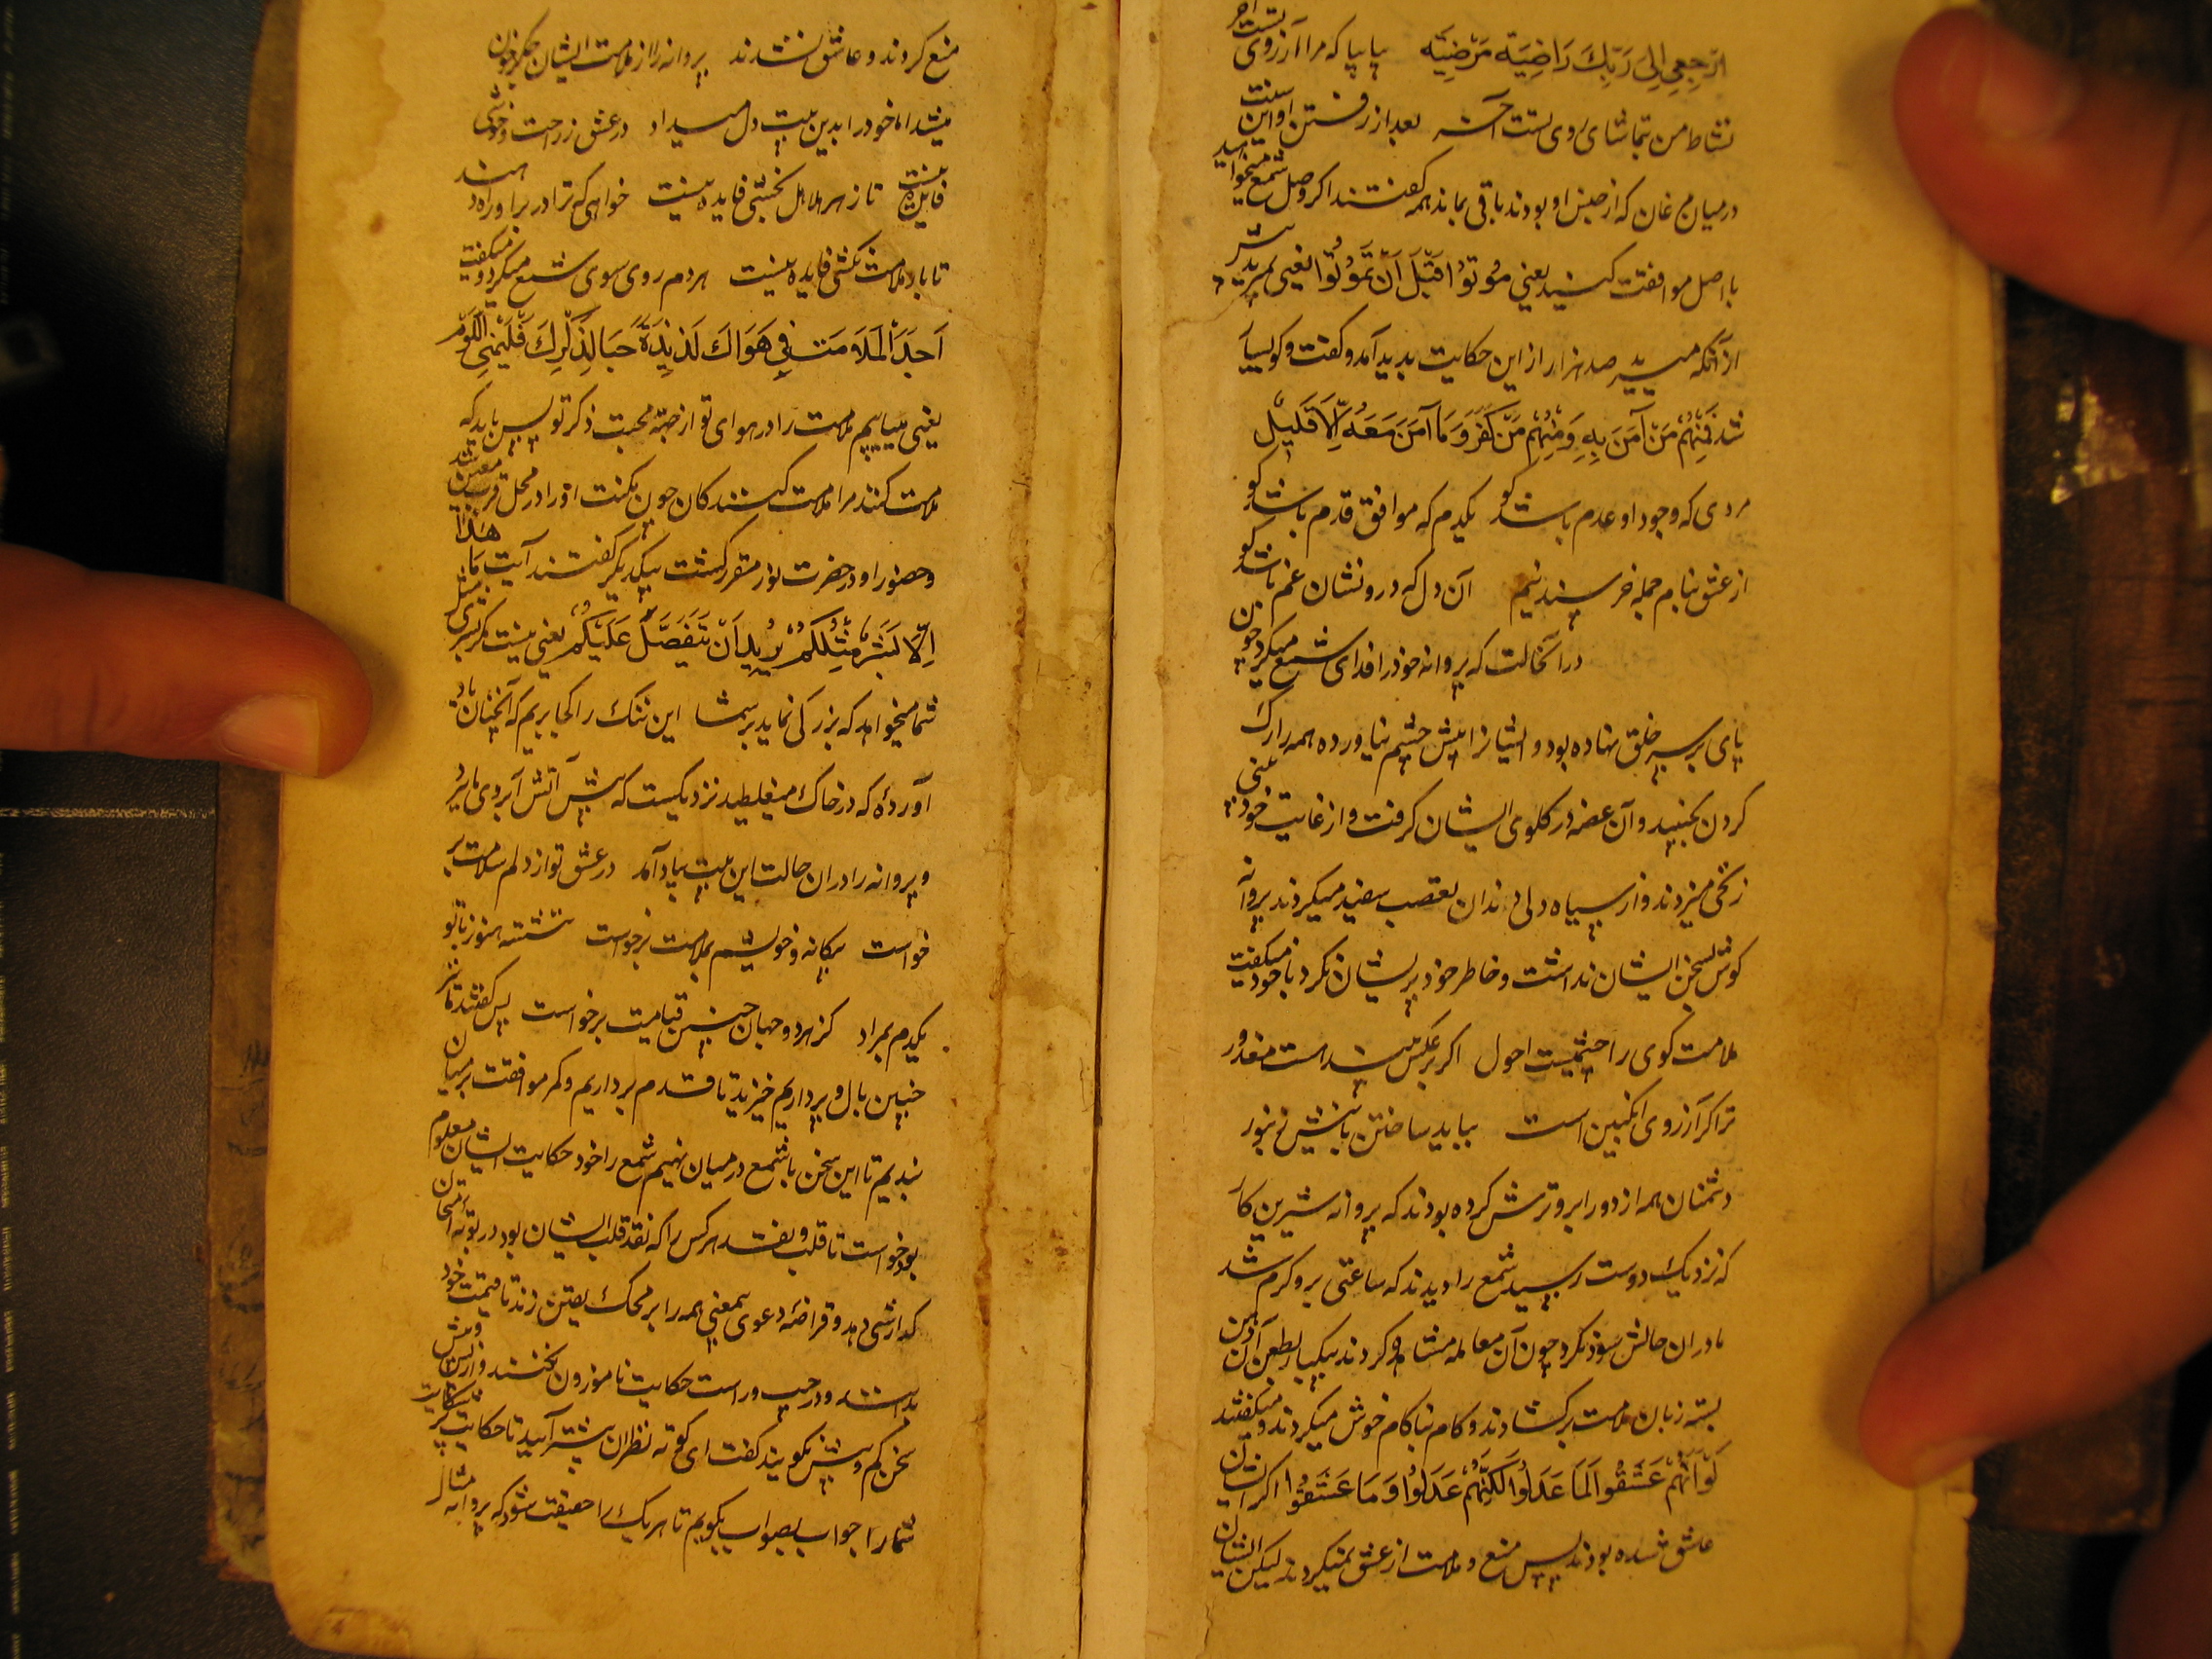 ارْجِعِي اِلى رَبِّكَ رَاضِيَة مَرْضِيَه بیا بیا که مرا آرزوی تست آخر
نشاط من بتماشای روی تست آخر بعد از رفتن او این سنت
درمیان مرغان که از جنس او بودند باقی بماند همه گفتند اگر وصل شمع میخواهید
با اصل موافقت کنید یعنی مُوتُوا قَبْلَ اَنْ تَمُوتُوا یعنی بمیرید پیشتر
از آنکه میرید صد هزار از این حکایت پدید آمد و گفت و گو بسیار
شد فَمِنْهُمْ مَنْ آمَنَ بِهِ وَمِنْهُمْ مَنْ كَفَرَ وَمَا آمَنَ مَعَهُ اِلَّا قَلِيْل
مردی که وجود او عدم باشد کو یکدم که موافق قدم باشد کو
از عشق بنام جمله خرسندیم آن دل که درو نشان غم باشد کو
در آنحالت که پروانه خود را فدای شمع میکرد چون
پای بر سر خلق نهاده بود و ایشانرا پیش چشم نیاورده همه را رک
کردن بجنبید و آن غصه در گلوی ایشان گرفت و از غایت خود بینی
زنخی میزدند و از سیاه دلی دندان تعصب سفید میکردند پروانه
گوش بسخن ایشان نداشت و خاطر خود پریشان نکرد با خود میگفت
ملامت گوی را چشمیست احول اگر بر عکس بیند هست معذور
ترا گر آرزوی انگبین است بباید ساختن با نیش زنبور
دشمنان همه از دور ابرو ترش کرده بودند که پروانه شیرین کار
که نزدیک دوست رسید شمع را دیدند که ساعتی برو گرم شد
مادران حالش سود نکرد چون آن معامله مشاهده کردند بیکبار بطعن آن دهن
بسته زبان ملامت برگشادند و کام ناکام خوش میکردند و میگفتند
لَوْ اَنَّهُمْ عَشَقُوا لَمَا عَدَلُوا لَكِنَّهُمْ عَدَلُوا وَمَا عَشَقُوا اگر ایشان
عاشق شده بودند پس منع و ملامت از عشق نمیکردند لیکن ایشان
منع کردند و عاشق نشدند پروانه را از ملامت ایشان جگر خون
میشد اما خود را بدین بیت دل میداد در عشق ز راحت و خوشی
فایده نیست تا زهر هلاهل نچشی فایده نیست خواهی که ترا در بر او راه دهند
تا بار ملامت نکشی فایده نیست هر دم روی سوی شمع میکرد و میگفت
اَجِدُ الْمَلَامَتَ فِي هَوَاكَ لَذِيْذَةً حُبًّا لِذِكْرِكَ فَلْيَلُمْنِي اللُّوَّمُ
یعنی مییابیم ملامت را در هوای تو از جهة محبت ذکر تو پس باید که
ملامت کنند مرا ملامت کنندگان چون مکنت او را در محل قرب معین شد
و حضور او در حضرت نور مقرر گشت بیکدیگر گفتند آیت مَا هَذَا
اِلَّا بَشَرٌ مِثْلُكُمْ يُرِيْدُ اَنْ يَتَفَضَّلَ عَلَيْكُمْ یعنی نیست مگر بشری مثل
شما میخواهد که بزرگی نماید بر شما این ننگ را کجا بریم که آنچنان باد
آورده که در خاک میغلطید نزدیکست که پیش آتش آبروی ما برد
و پروانه را دران حالت این بیت بیاد آمد در عشق تو از دلم سلامت بر
خواست بیگانه و خویشم بملامت برخواست ننشسته هنوز با تو
یکدم بمراد کز هر دو جهان چنین قیامت برخواست پس گفتند ما نیز
چنین بال و پر داریم خیزید تا قدم برداریم و کمر موافقت بر میان
بندیم تا این سخن با شمع درمیان نهیم شمع را خود حکایت ایشان معلوم
بود خواست تا قلب و نقد هر کس را که نقد قلب ایشان بود در بوته امتحان
گدازشی دهد و قراضهٔ دعوی بیمعنی همه را بر محک یقین زند تا قیمت خود
بدانند و در چپ و راست حکایت ناموزون نکنند و از پس و پیش
سخن کم و بیش نگویند گفت ای کوته نظران پیشتر آیید تا حکایت پر شکایت
شما را جواب بصواب بگویم تا هر یک را حقیقت شود که پروانه مثال